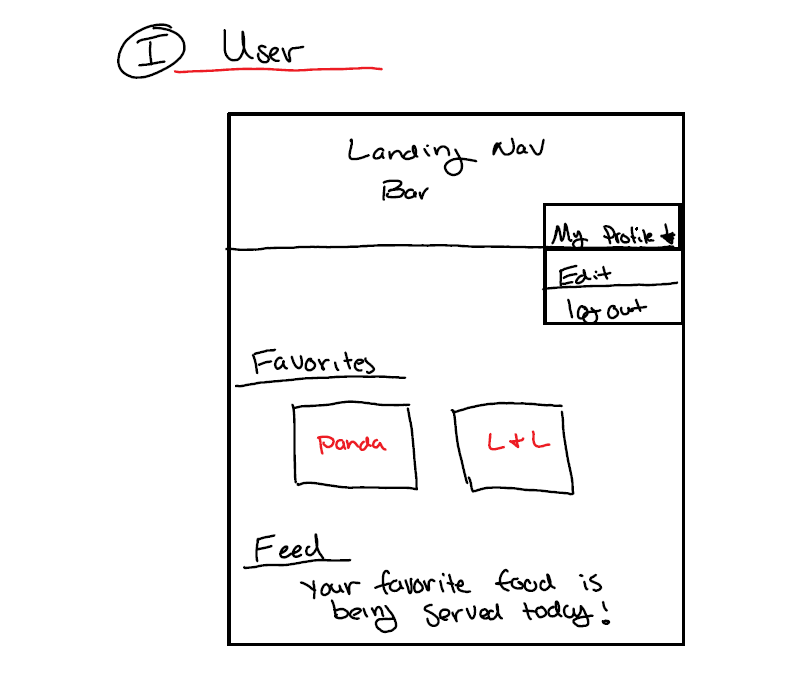 I User
Landing Nav
Bar
My Profile
Edit
log out
Favorites
Panda
L+L
Feed
Your favorite food is
being served today!